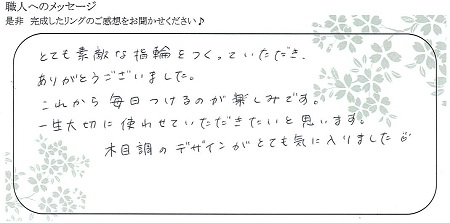 職人へのメッセージ
是非 完成したリングのご感想をお聞かせください♪
とても素敵な指輪をつくっていただき、
ありがとうございました。
これから毎日つけるのが楽しみです。
一生大切に使わせていただきたいと思います。
木目調のデザインがとても気に入りました